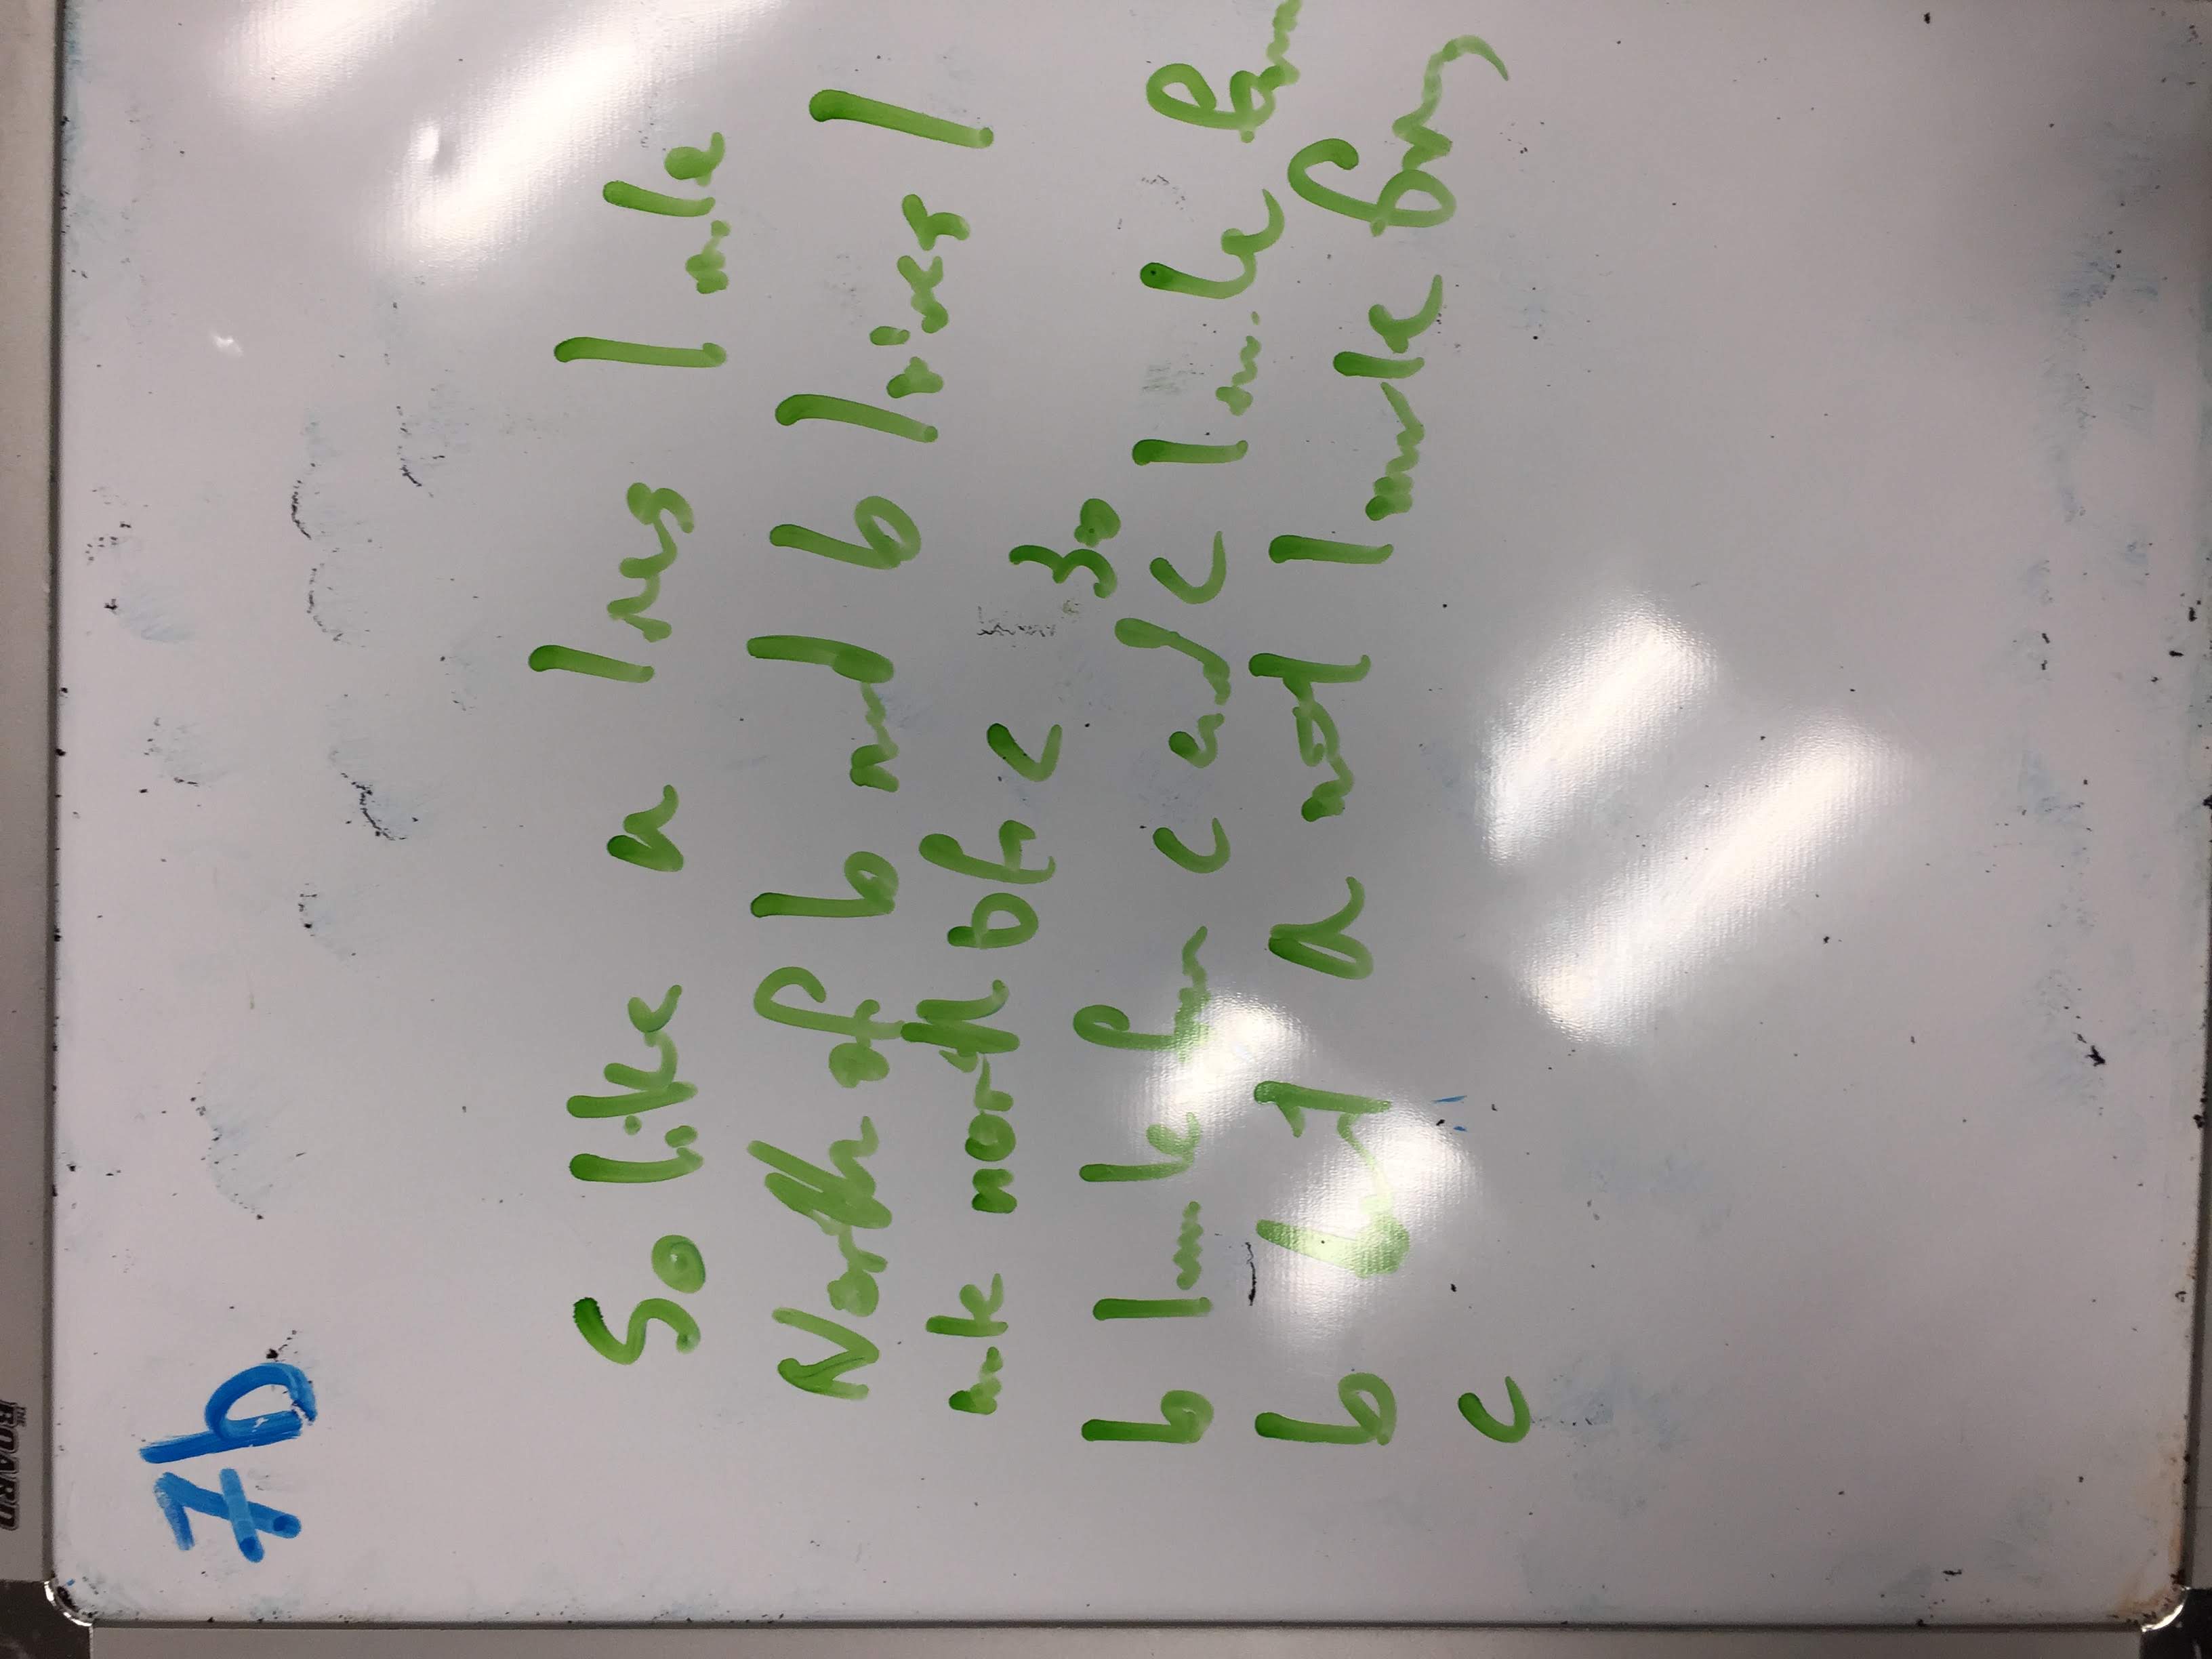 THE BOARD
7b
So like a lives 1 mile
North of b and b lives 1
mile north of c so
b 1 mile from c and c 1 mile from
b but a not 1 mile from
c